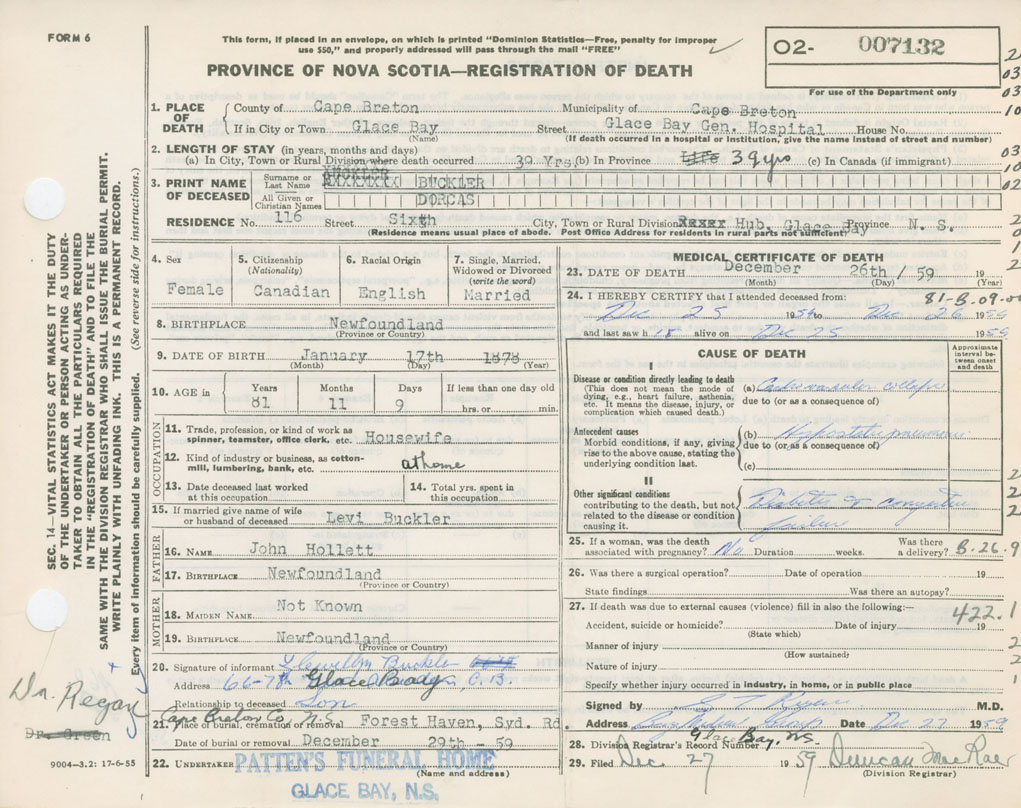 FORM 6
This form, if placed in an envelope, on which is printed "Dominion Statistics—Free, penalty for improper
use $50," and properly addressed will pass through the mail "FREE"
PROVINCE OF NOVA SCOTIA—REGISTRATION OF DEATH
02- 007132
For use of the Department only
SEC. 14—VITAL STATISTICS ACT MAKES IT THE DUTY
OF THE UNDERTAKER OR PERSON ACTING AS UNDER-
TAKER TO OBTAIN ALL THE PARTICULARS REQUIRED
IN THE "REGISTRATION OF DEATH" AND TO FILE THE
SAME WITH THE DIVISION REGISTRAR WHO SHALL ISSUE THE BURIAL PERMIT.
WRITE PLAINLY WITH UNFADING INK. THIS IS A PERMANENT RECORD.
Every item of information should be carefully supplied. (See reverse side for instructions.)
1. PLACE OF DEATH
County of Cape Breton Municipality of Cape Breton
If in City or Town Glace Bay Street Glace Bay Gen. Hospital House No.
(Name) (If death occurred in a hospital or institution, give the name instead of street and number)
2. LENGTH OF STAY (in years, months and days)
(a) In City, Town or Rural Division where death occurred 39 Yrs. (b) In Province 39 yrs (c) In Canada (if immigrant)
3. PRINT NAME OF DECEASED
Surname or Last Name BUCKLER
All Given or Christian Names DORCAS
RESIDENCE No. 116 Street Sixth City, Town or Rural Division Hub, Glace Bay Province N. S.
(Residence means usual place of abode. Post Office Address for residents in rural parts not sufficient)
4. Sex
Female
5. Citizenship
(Nationality)
Canadian
6. Racial Origin
English
7. Single, Married,
Widowed or Divorced
(write the word)
Married
8. BIRTHPLACE Newfoundland
(Province or Country)
9. DATE OF BIRTH January 17th 1878
(Month) (Day) (Year)
10. AGE in
Years Months Days If less than one day old
81 11 9 hrs. or min.
OCCUPATION
11. Trade, profession, or kind of work as
spinner, teamster, office clerk, etc. Housewife
12. Kind of industry or business, as cotton-
mill, lumbering, bank, etc. at home
13. Date deceased last worked
at this occupation
14. Total yrs. spent in
this occupation
15. If married give name of wife
or husband of deceased Levi Buckler
FATHER
16. NAME John Hollett
17. BIRTHPLACE Newfoundland
(Province or Country)
MOTHER
18. MAIDEN NAME Not Known
19. BIRTHPLACE Newfoundland
(Province or Country)
20. Signature of informant Llewellyn Buckler
Address 66-7th Glace Bay, C.B.
Relationship to deceased Son
Cape Breton Co. N.S.
21. Place of burial, cremation or removal Forest Haven, Syd. Rd
Date of burial or removal December 29th - 59
22. UNDERTAKER PATTEN'S FUNERAL HOME
(Name and address)
GLACE BAY, N.S.
Dr. Regan
Dr. Green
9004—3.2: 17-6-55
MEDICAL CERTIFICATE OF DEATH
23. DATE OF DEATH December 26th / 59 19
(Month) (Day) (Year)
24. I HEREBY CERTIFY that I attended deceased from:
81-B.09-0
Dec 25 1959 to Dec 26 1959
and last saw h alive on Dec 25 1959
CAUSE OF DEATH
Approximate interval between onset and death
I
Disease or condition directly leading to death
(This does not mean the mode of
dying, e.g., heart failure, asthenia,
etc. It means the disease, injury, or
complication which caused death.)
(a) Cardiovascular collapse
due to (or as a consequence of)
Antecedent causes
Morbid conditions, if any, giving
rise to the above cause, stating the
underlying condition last.
(b) Hypostatic pneumonia
due to (or as a consequence of)
(c)
II
Other significant conditions
contributing to the death, but not
related to the disease or condition
causing it.
Diabetes & congestive
failure
25. If a woman, was the death
associated with pregnancy? No Duration weeks. Was there
a delivery?
B-26-9
26. Was there a surgical operation? Date of operation 19
State findings Was there an autopsy?
27. If death was due to external causes (violence) fill in also the following:—
422.1
Accident, suicide or homicide? Date of injury 19
(State which)
Manner of injury
(How sustained)
Nature of injury
Specify whether injury occurred in industry, in home, or in public place
Signed by M.D.
Address Date Dec 27 1959
Glace Bay, NS.
28. Division Registrar's Record Number
29. Filed Dec. 27 1959 Duncan MacRae
(Division Registrar)